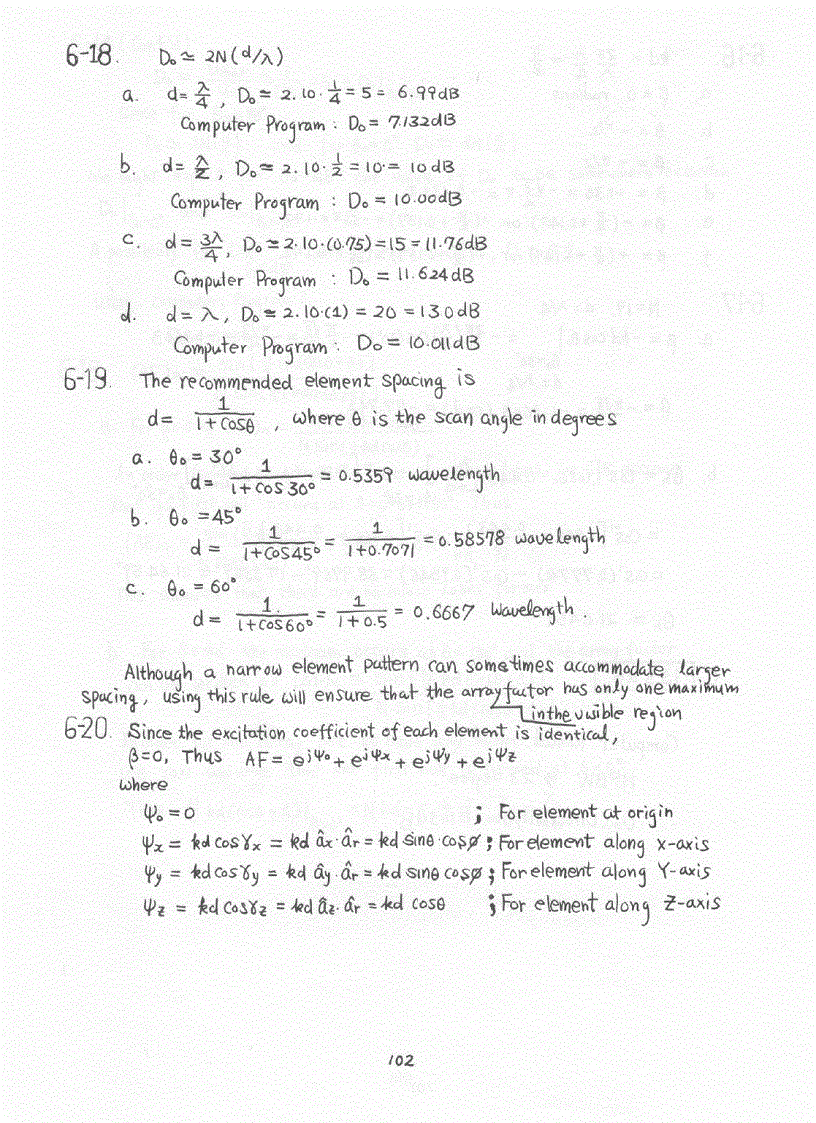 6-18. D₀ ≃ 2N(d/λ)
a. d= λ/4, D₀≃ 2·10·1/4 = 5 = 6.99dB
Computer Program : D₀= 7.132dB
b. d= λ/2, D₀≃ 2·10·1/2 = 10 = 10dB
Computer Program : D₀ = 10.00dB
c. d= 3λ/4, D₀≃2·10·(0.75)=15=11.76dB
Computer Program : D₀ = 11.624dB
d. d= λ, D₀≃ 2·10·(1) = 20 = 13.0dB
Computer Program : D₀= 10.011dB
6-19. The recommended element spacing is
d= 1/(1+cosθ), where θ is the scan angle in degrees
a. θ₀ = 30°
d= 1/(1+cos30°) = 0.5359 wavelength
b. θ₀ = 45°
d = 1/(1+cos45°) = 1/(1+0.7071) = 0.58578 wavelength
c. θ₀ = 60°
d = 1/(1+cos60°) = 1/(1+0.5) = 0.6667 wavelength.
Although a narrow element pattern can sometimes accommodate larger
spacing, using this rule will ensure that the array factor has only one maximum
in the visible region
6-20. Since the excitation coefficient of each element is identical,
β=0, Thus AF= e^jψ₀ + e^jψx + e^jψy + e^jψz
where
ψ₀ = 0 ; For element at origin
ψx = kd cosγx = kd âx·âr = kd sinθ·cosø ; For element along x-axis
ψy = kd cosγy = kd ây·âr = kd sinθ cosø ; For element along Y-axis
ψz = kd cosγz = kd âz·âr = kd cosθ ; For element along Z-axis
102